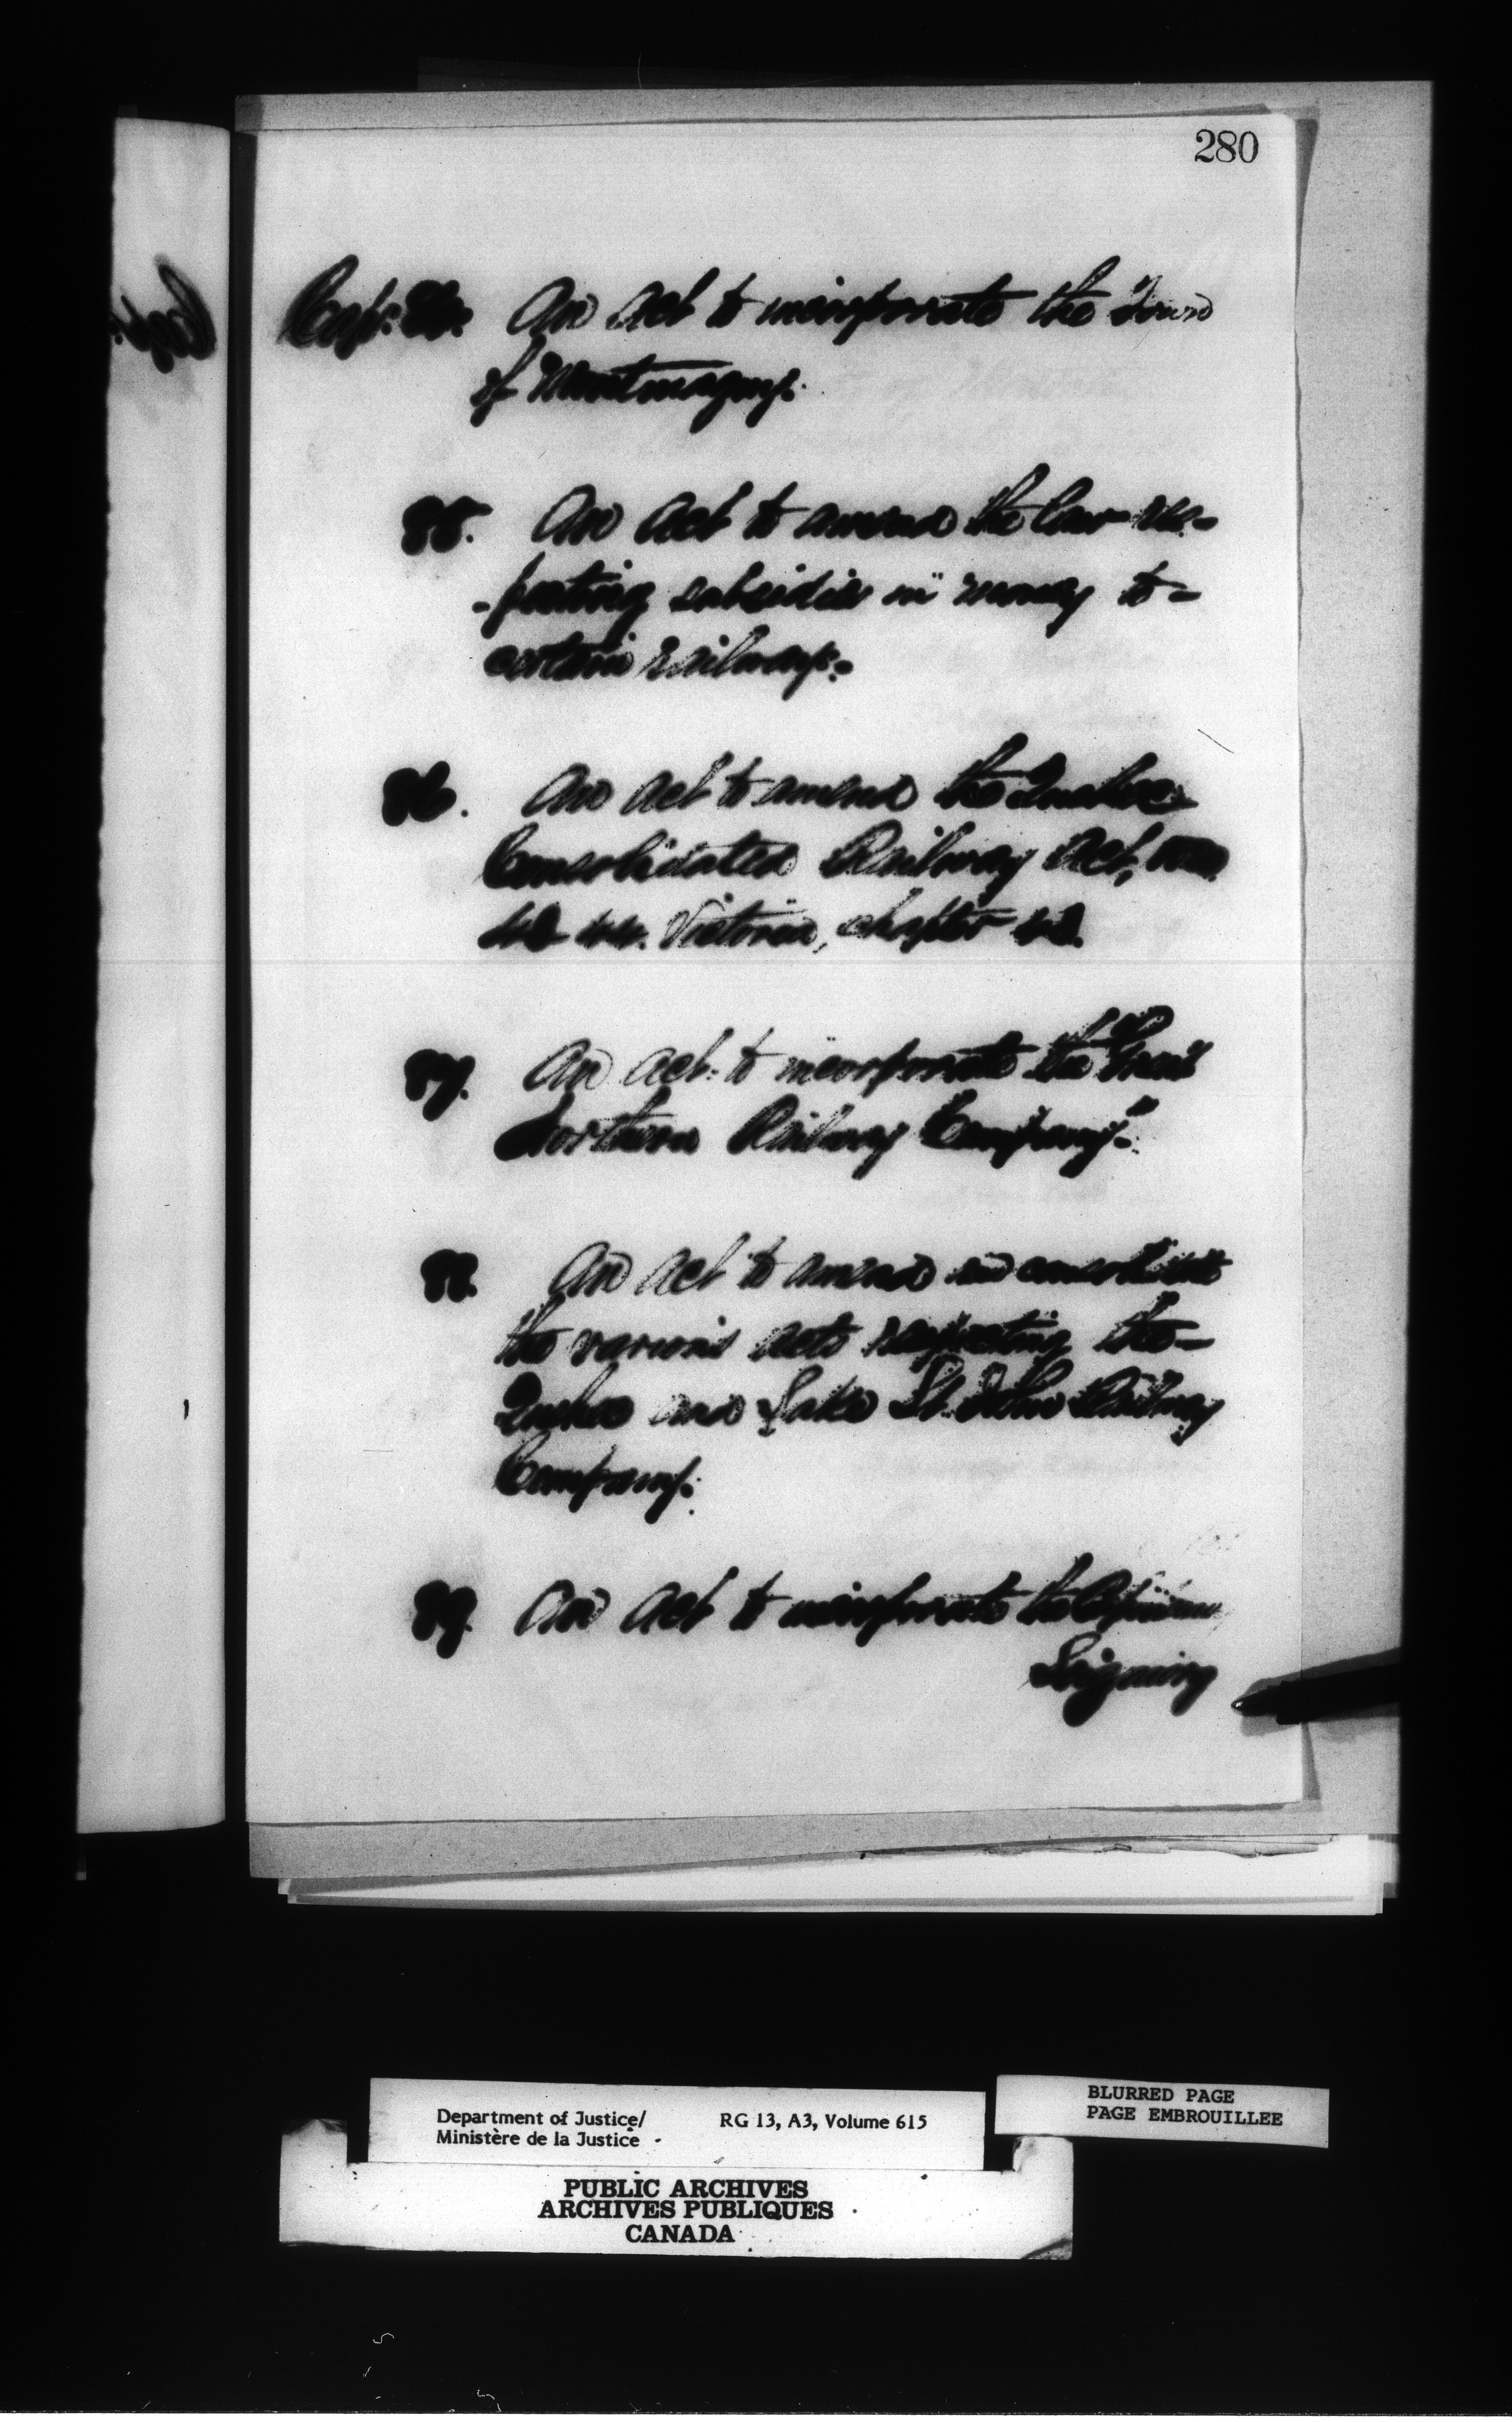 280
Cap: 84. An Act to incorporate the Town
of Montmagny.
85. An Act to amend the law res-
-pecting subsidies in money to-
certain railways.
86. An Act to amend the Quebec
Consolidated Railway Act,
43 44. Victoria, chapter 43.
87. An Act to incorporate the Great
Northern Railway Company.
88. An Act to amend and consolidate
the various acts respecting the-
Quebec and Lake St. John Railway
Company.
89. An Act to incorporate the
Seigniory
Cap:
Department of Justice/ RG 13, A3, Volume 615
Ministère de la Justice
BLURRED PAGE
PAGE EMBROUILLEE
PUBLIC ARCHIVES
ARCHIVES PUBLIQUES
CANADA